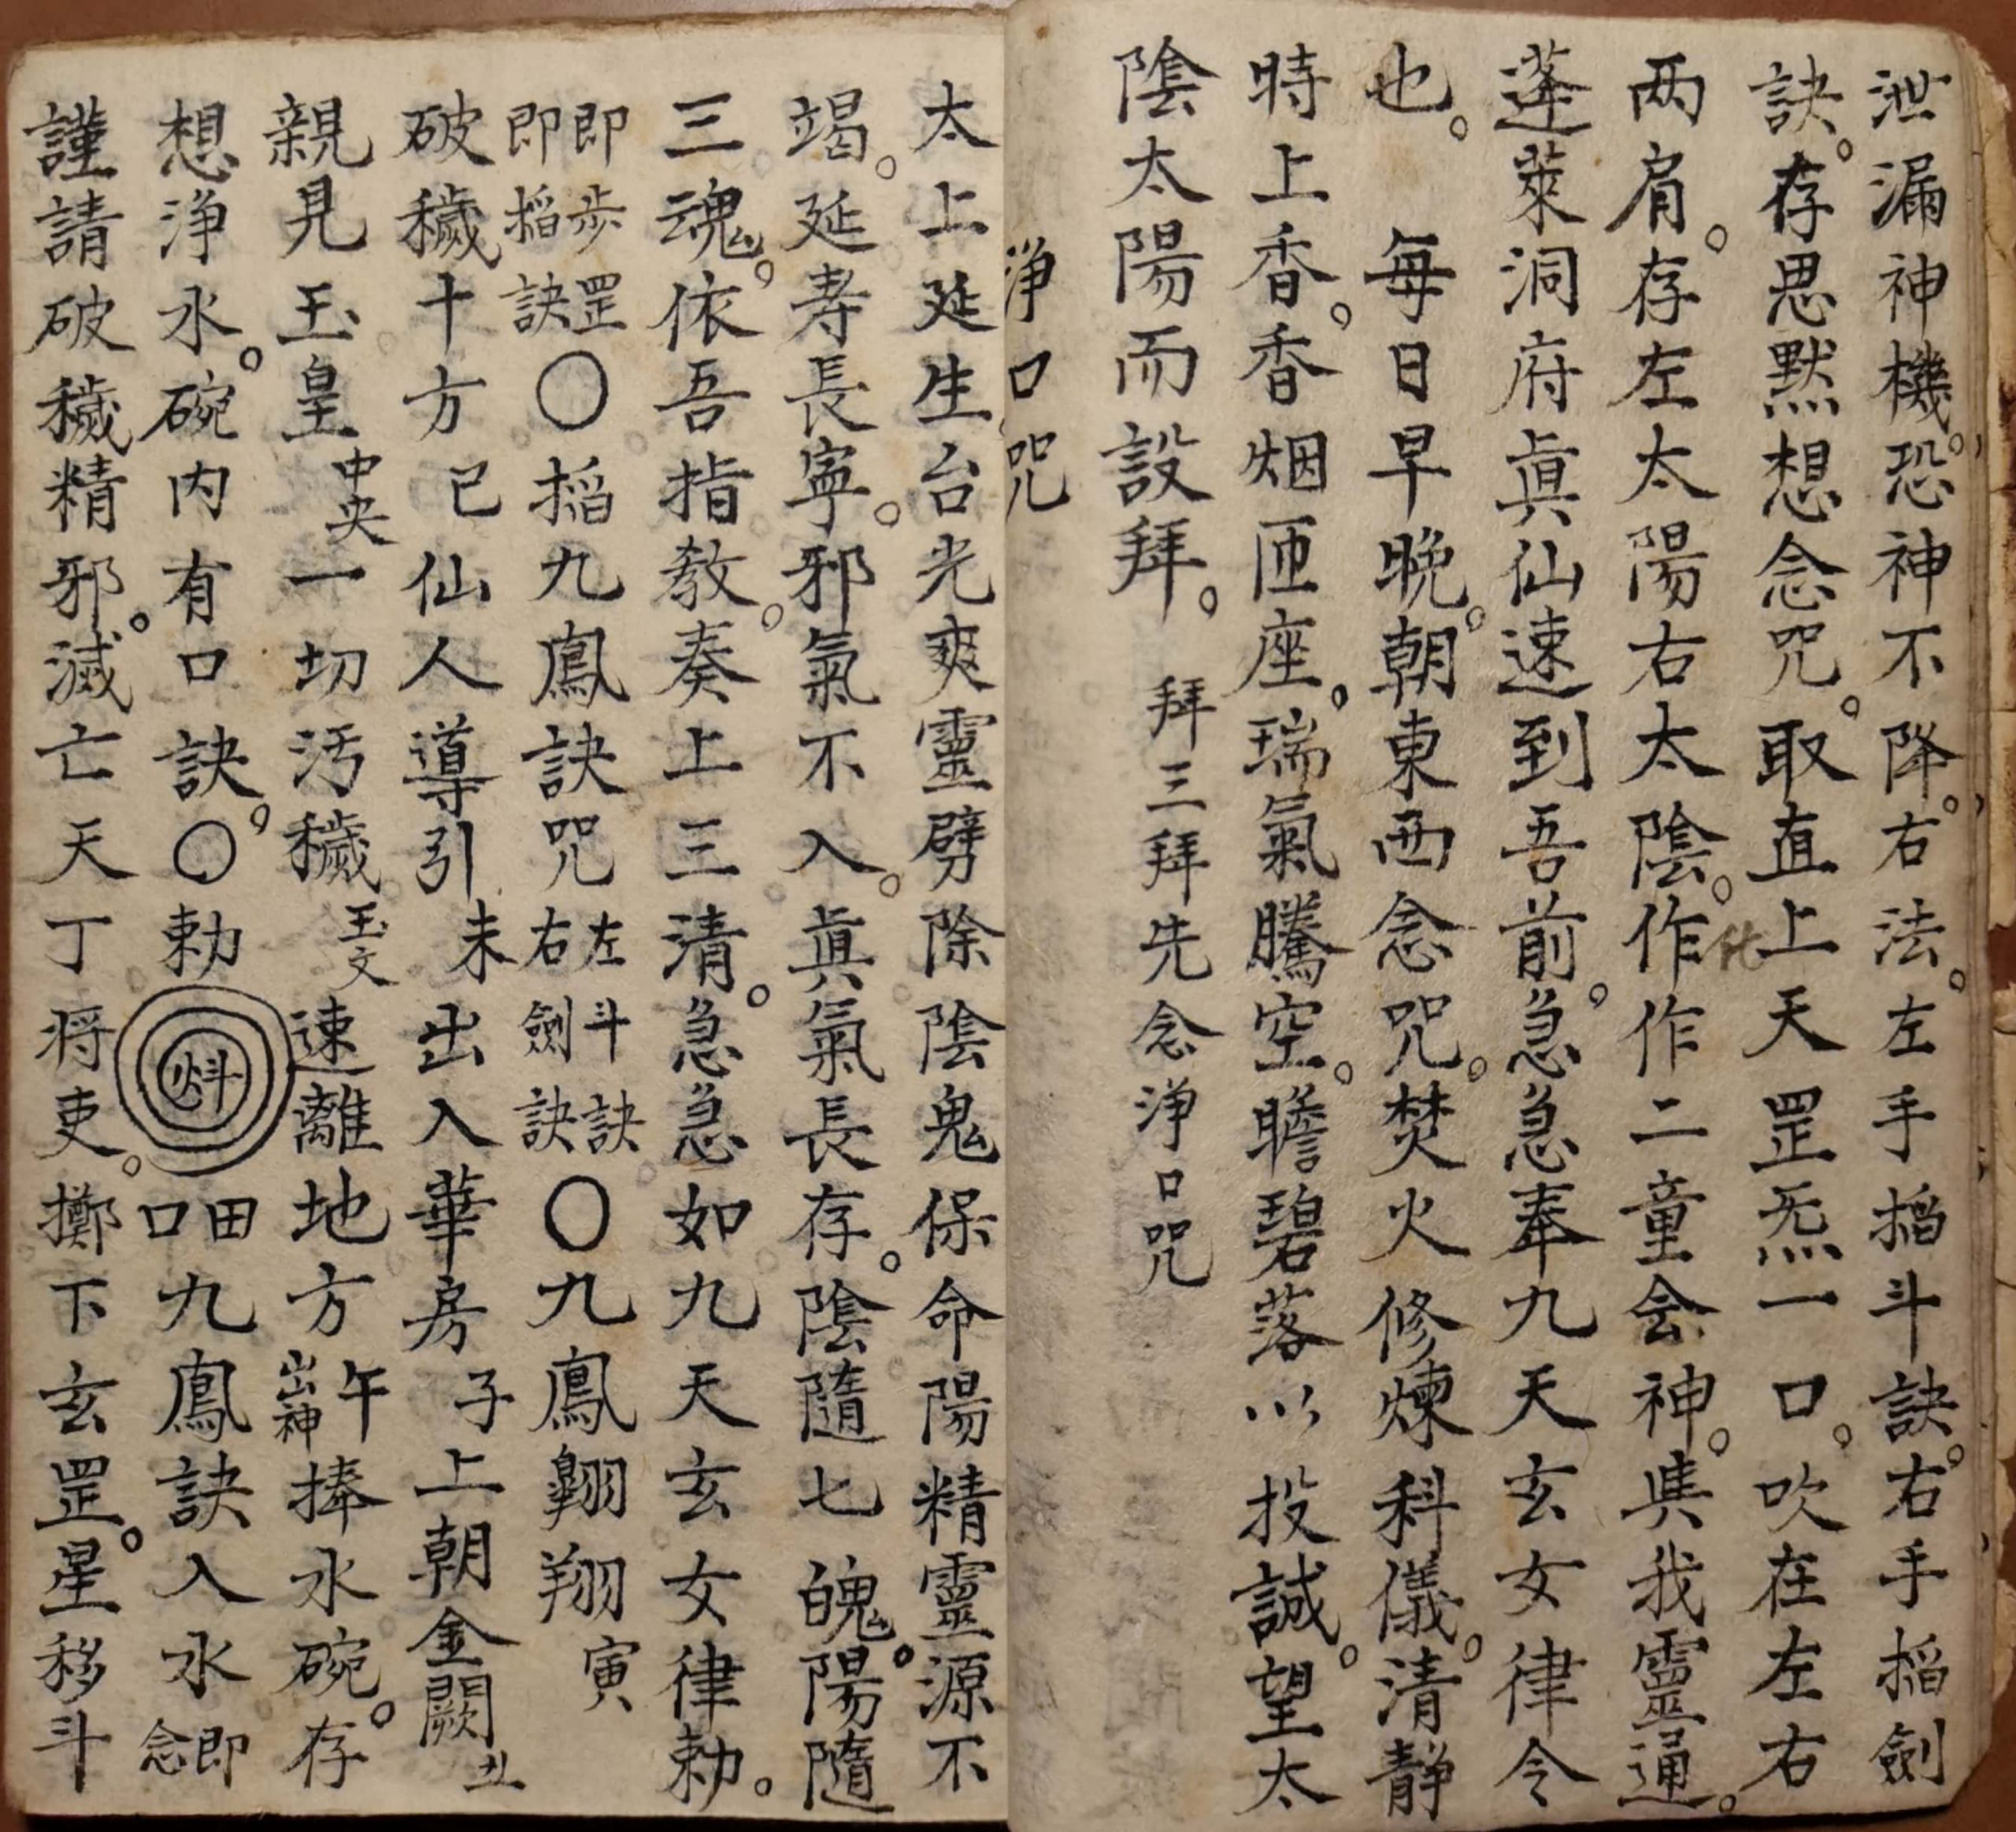 泄漏神機。恐神不降。右法。左手搯斗訣。右手搯劍
訣。存思默想念咒。取直上天罡炁一口。吹在左右
两肩。存左太陽右太陰。作作二童会神。與我靈通。
化
蓬萊洞府真仙速到吾前。急急奉九天玄女律令
也。 每日早晚。朝東西念咒。焚火修煉科儀。清靜
時上香。香烟匝座。瑞氣騰空。瞻碧落以投誠。望太
陰太陽而設拜。 拜三拜先念淨口咒
淨口咒
太上延生台光爽靈劈除陰鬼保命陽精靈源不
竭。延寿長寧。邪氣不入。真氣長存。陰隨七魄。陽隨
三魂。依吾指教。奏上三清。急急如九天玄女律勅。
即步罡
即搯訣
〇搯九鳳訣咒
左斗訣
右劍訣
〇九鳳翱翔寅
破穢十方已仙人導引未出入華房子上朝金闕丑
親見玉皇中央一切汚穢玉文速離地方午出神捧水碗。存
想淨水。碗内有口訣。〇勅㪳口田九鳳訣入水即念
謹請破穢精邪。滅亡天丁将吏。擲下玄罡。星移斗